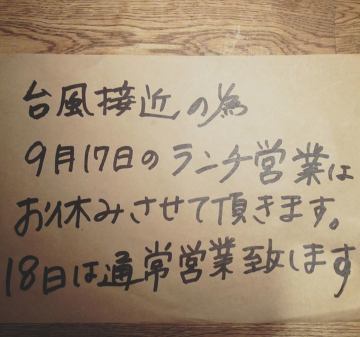 台風接近の為
9月17日のランチ営業は
お休みさせて頂きます。
18日は通常営業致します